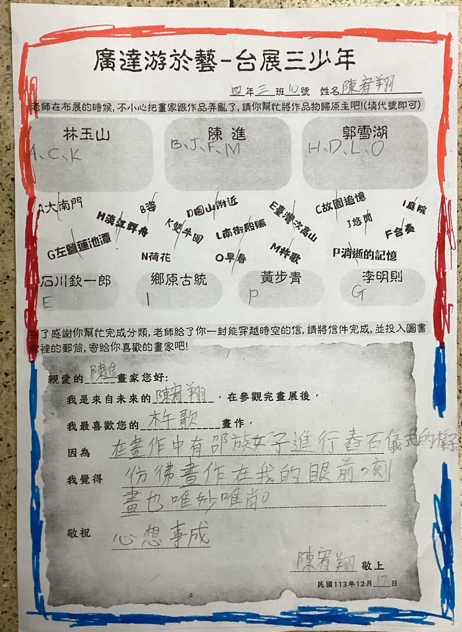 廣達游於藝-台展三少年
四年三班10號 姓名陳宥翔
老師在布展的時候,不小心把畫家跟作品弄亂了,請你幫忙將作品物歸原主吧!(填代號即可)
林玉山 陳 進 郭雪湖
A、C、K B、J、F、M H、D、L、O
A大南門 H淡江群舟 B姿 K雙牛圖 D圓山附近 L南街殷賑 E臺灣次高山 C故園追憶 J悠閒 I庭院 F合奏
G左營蓮池潭 N荷花 O早春 M杵歌 P消逝的記憶
石川欽一郎 鄉原古統 黃步青 李明則
E I P G
為了感謝你幫忙完成分類,老師給了你一封能穿越時空的信,請將信件完成,並投入圖書
館裡的郵筒,寄給你喜歡的畫家吧!
親愛的陳進畫家您好:
我是來自未來的陳宥翔,在參觀完畫展後,
我最喜歡您的杵歌畫作,
因為 在畫作中有邵族女子進行舂石儀式的樣子
我覺得 仿彿畫作在我的眼前。刻
畫也唯妙唯肖。
敬祝 心想事成
陳宥翔 敬上
民國113年12月17日